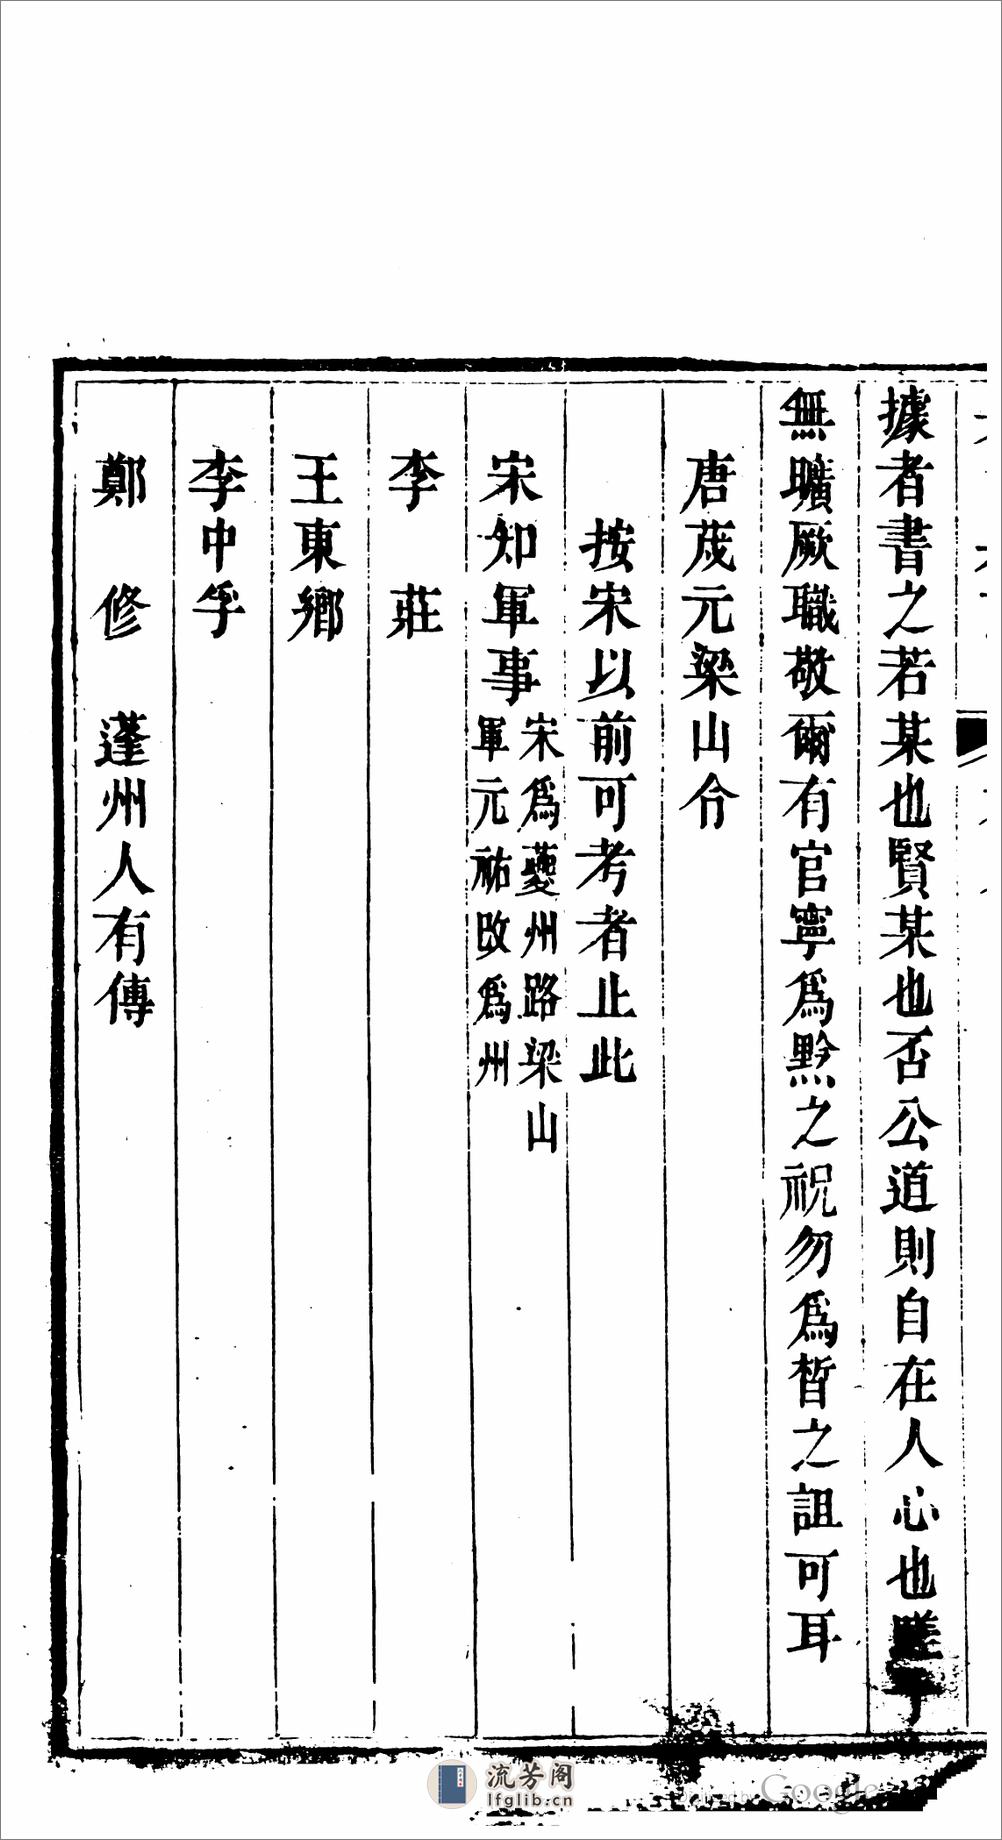 據者書之若某也賢某也否公道則自在人心也嗟乎
無曠厥職敬爾有官寧爲黔之祝勿爲晳之詛可耳
唐茂元梁山令
按宋以前可考者止此
宋知軍事宋爲夔州路梁山
軍元祐改爲州
李莊
王東鄉
李中孚
鄭修 蓬州人有傳
流芳阁
lfglib.cn
Google